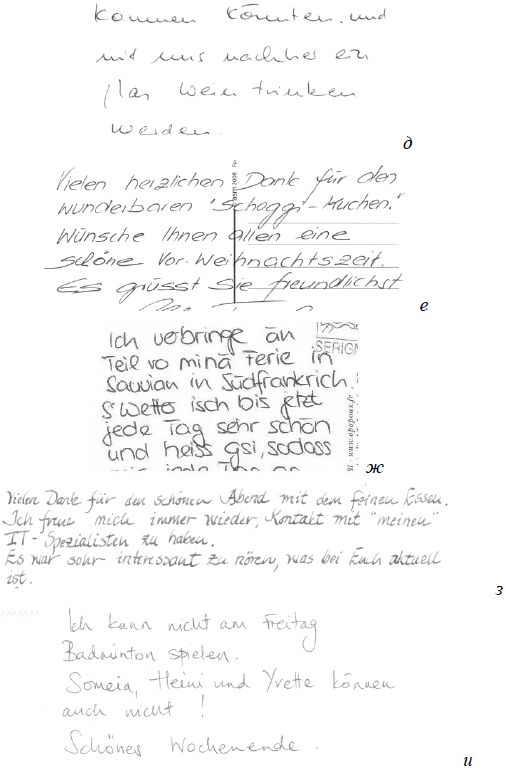 kommen könnten und
mit uns nachher ein
Glas Wein trinken
werden.
д
Vielen herzlichen Dank für den
wunderbaren "Schoggi"-Kuchen."
Wünsche Ihnen allen eine
schöne Vor-Weihnachtszeit.
Es grüsst Sie freundlichst
е
Ich verbringe än
Teil vo minä Ferie in
SERIGN
Sauvian in Südfrankrich.
S'Wetter isch bis jetzt
jede Tag sehr schön
und heiss gsi, sodass
ж
Vielen Dank für den schönen Abend mit dem feinen Essen.
Ich freue mich immer wieder, Kontakt mit "meinen"
IT-Spezialisten zu haben.
Es war sehr interessant zu hören, was bei Euch aktuell
ist.
з
Ich kann nicht am Freitag
Badminton spielen.
Someia, Heini und Yvette können
auch nicht !
Schönes Wochenende.
и